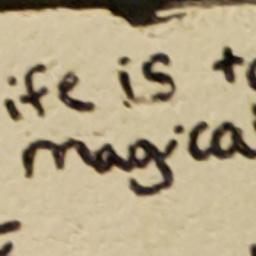 ife is to
magical